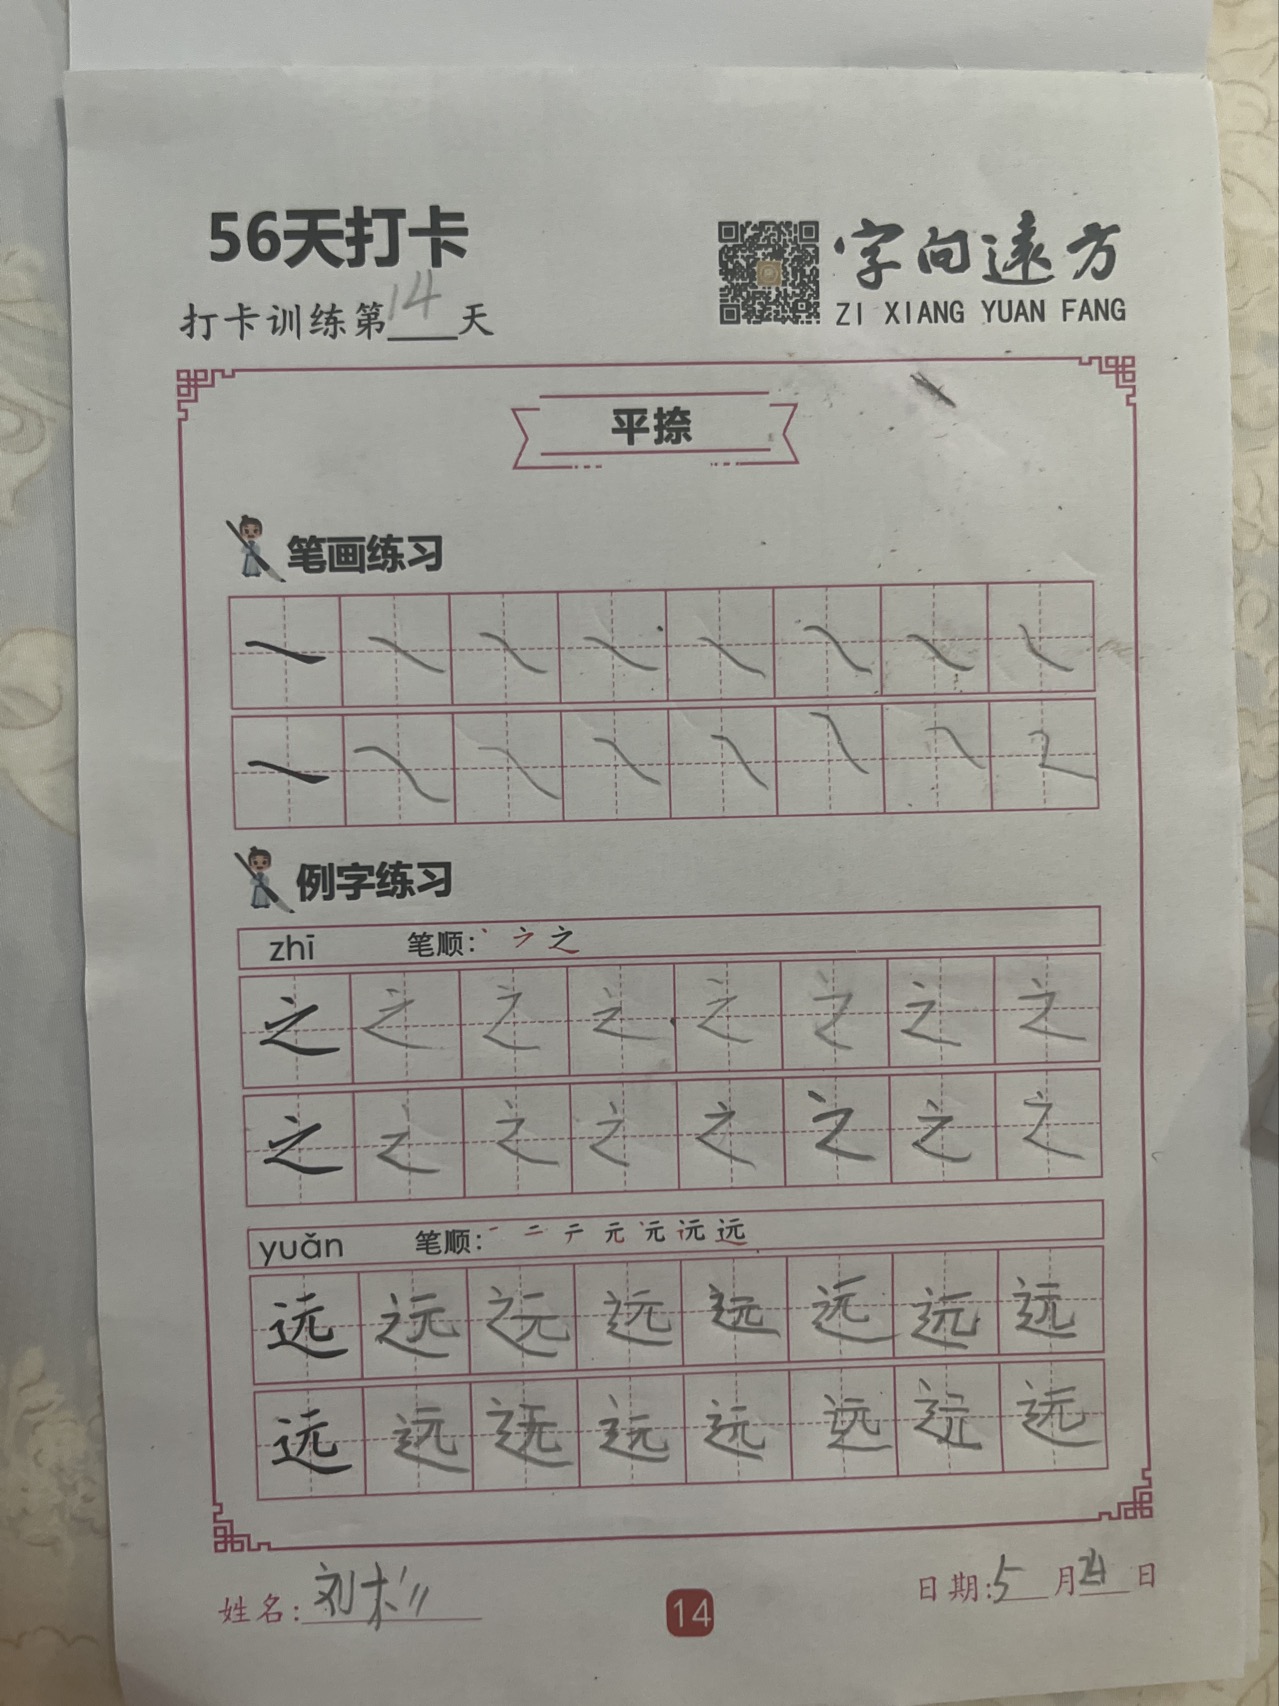 56天打卡
字向远方
打卡训练第14天
ZI XIANG YUAN FANG
平捺
笔画练习
例字练习
zhī 笔顺: 之
之 之 之 之 之 之 之 之
之 之 之 之 之 之 之 之
yuǎn 笔顺: 一 二 テ 元 远
远 远 远 远 远 远 远 远
远 远 远 远 远 远 远 远
姓名: 刘
14
日期: 5月 日